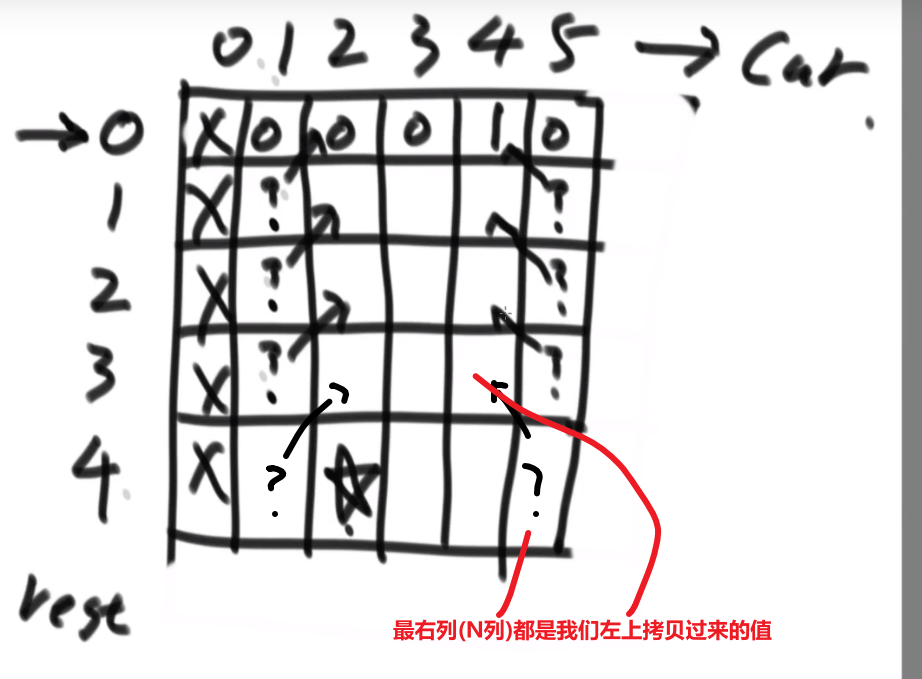 0 1 2 3 4 5 → Cur
→ 0 X 0 0 0 1 0
1 X ? ?
2 X ? ?
3 X ? ?
4 X ? ☆ ?
rest
最右列(N列)都是我们左上拷贝过来的值